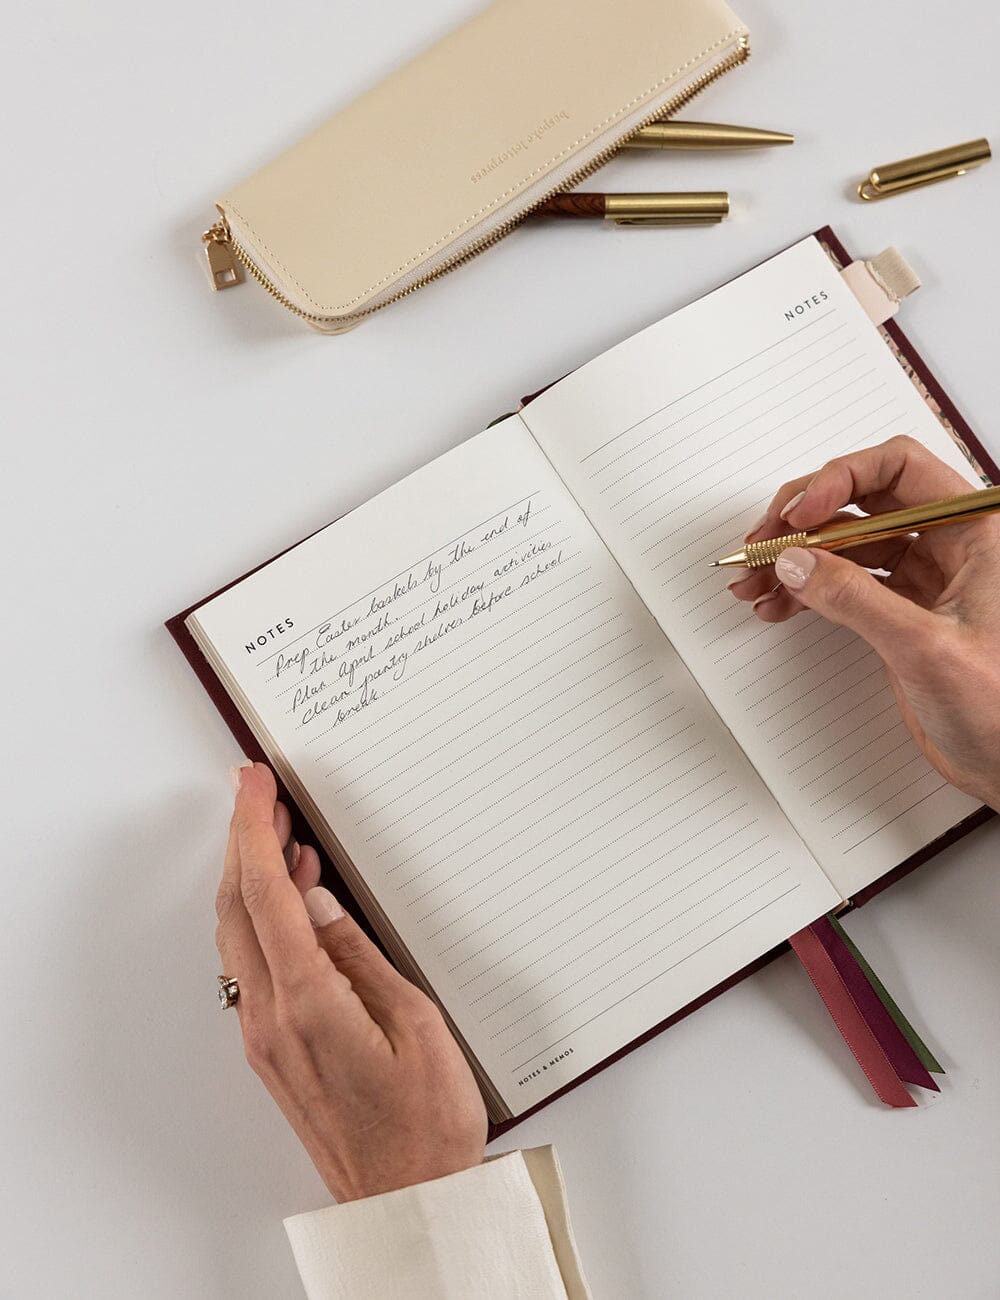 bespoke letterpress
NOTES
NOTES
Prep Easter baskets by the end of
the month.
Plan April school holiday activities
Clean pantry shelves before school
break.
NOTES & MEMOS